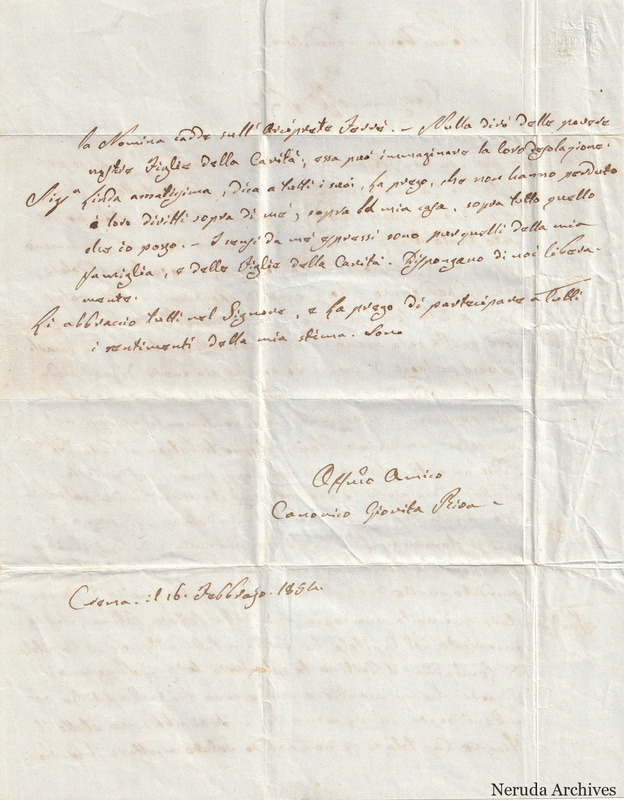 la Nomina cadde sull'Arciprete Ferrè. - Nulla dirò delle povere
nostre Figlie della Carità; essa può immaginare la loro desolazione.
Sig.a Linda amatissima, dica a tutti i suoi, La prego, che non hanno perduto
i loro diritti sopra di me, sopra la mia casa, sopra tutto quello
che io posso. - I sensi da me espressi sono pur quelli della mia
famiglia, e delle Figlie della Carità. Dispongano di noi libera-
mente.
Li abbraccio tutti nel Signore, e La prego di partecipare a Tutti
i sentimenti della mia stima. Sono
Affmo Amico
Canonico Giovita
Crema. il 16. Febbrajo. 1854.
Neruda Archives